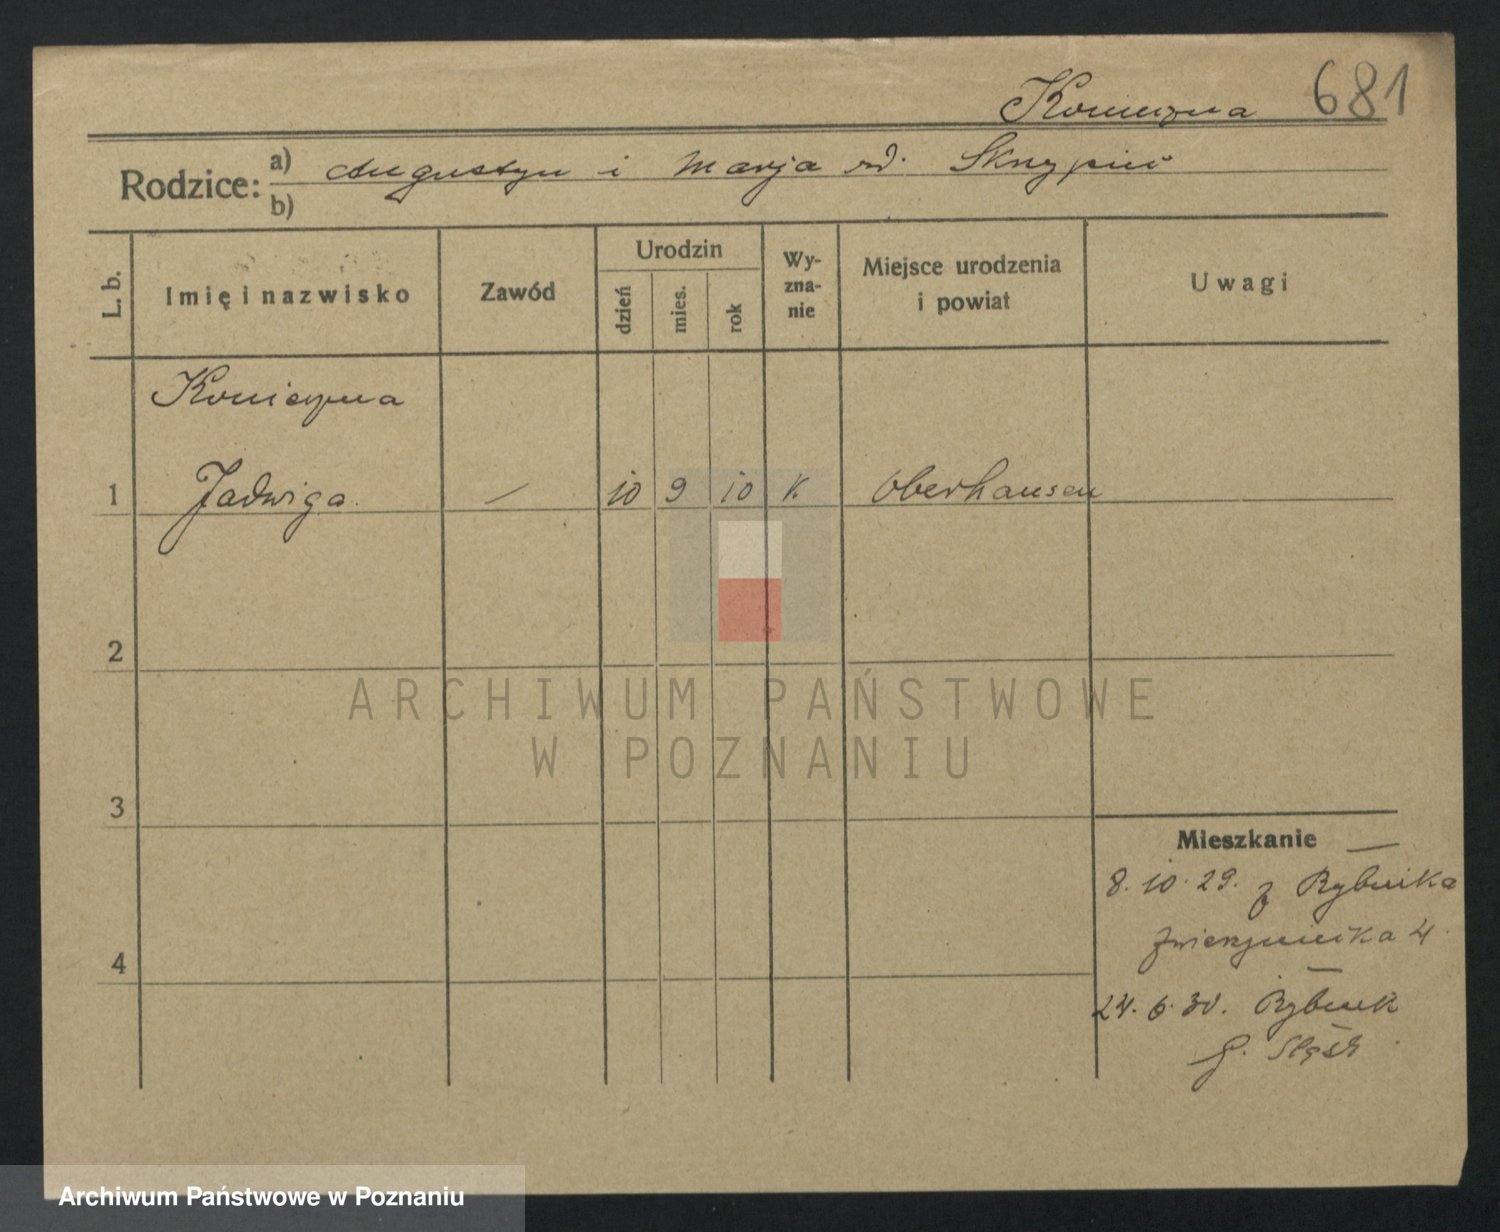 Konieczna 681
Rodzice: a) Augustyn i Marja rd. Skrzypiec
b)
L. b.
Imię i nazwisko
Zawód
Urodzin
dzień
mies.
rok
Wy-
zna-
nie
Miejsce urodzenia
i powiat
Uwagi
Konieczna
1 Jadwiga — 10 9 10 k. Oberhausen
2
3
4
Mieszkanie
8.10.29. z Rybnika
Zwierzyniecka 4.
24.6.30. Rybnik
G. Śląsk
ARCHIWUM PAŃSTWOWE
W POZNANIU
Archiwum Państwowe w Poznaniu